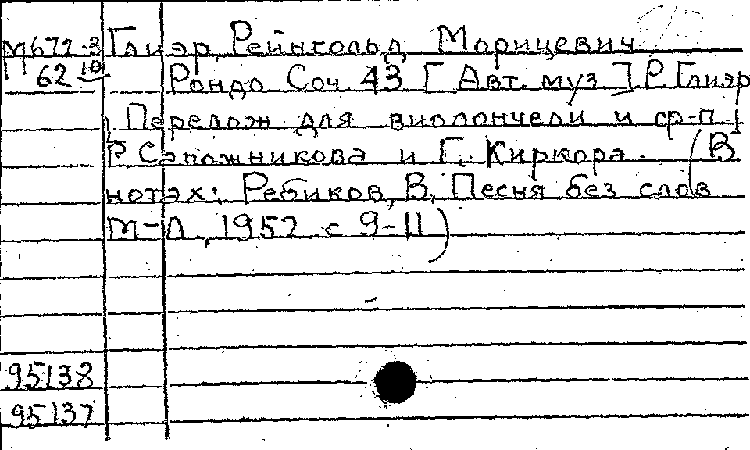 М672-3 Глиэр, Рейнгольд Морицевич
62 10 Рондо Соч. 43 [Авт. муз.] Р. Глиэр
Перелож для виолончели и ср-п
Р. Сапожникова и Г. Киркора. (В
нотах: Ребиков, В. Песня без слов
М-Л, 1952 с 9-11)
95138
95137